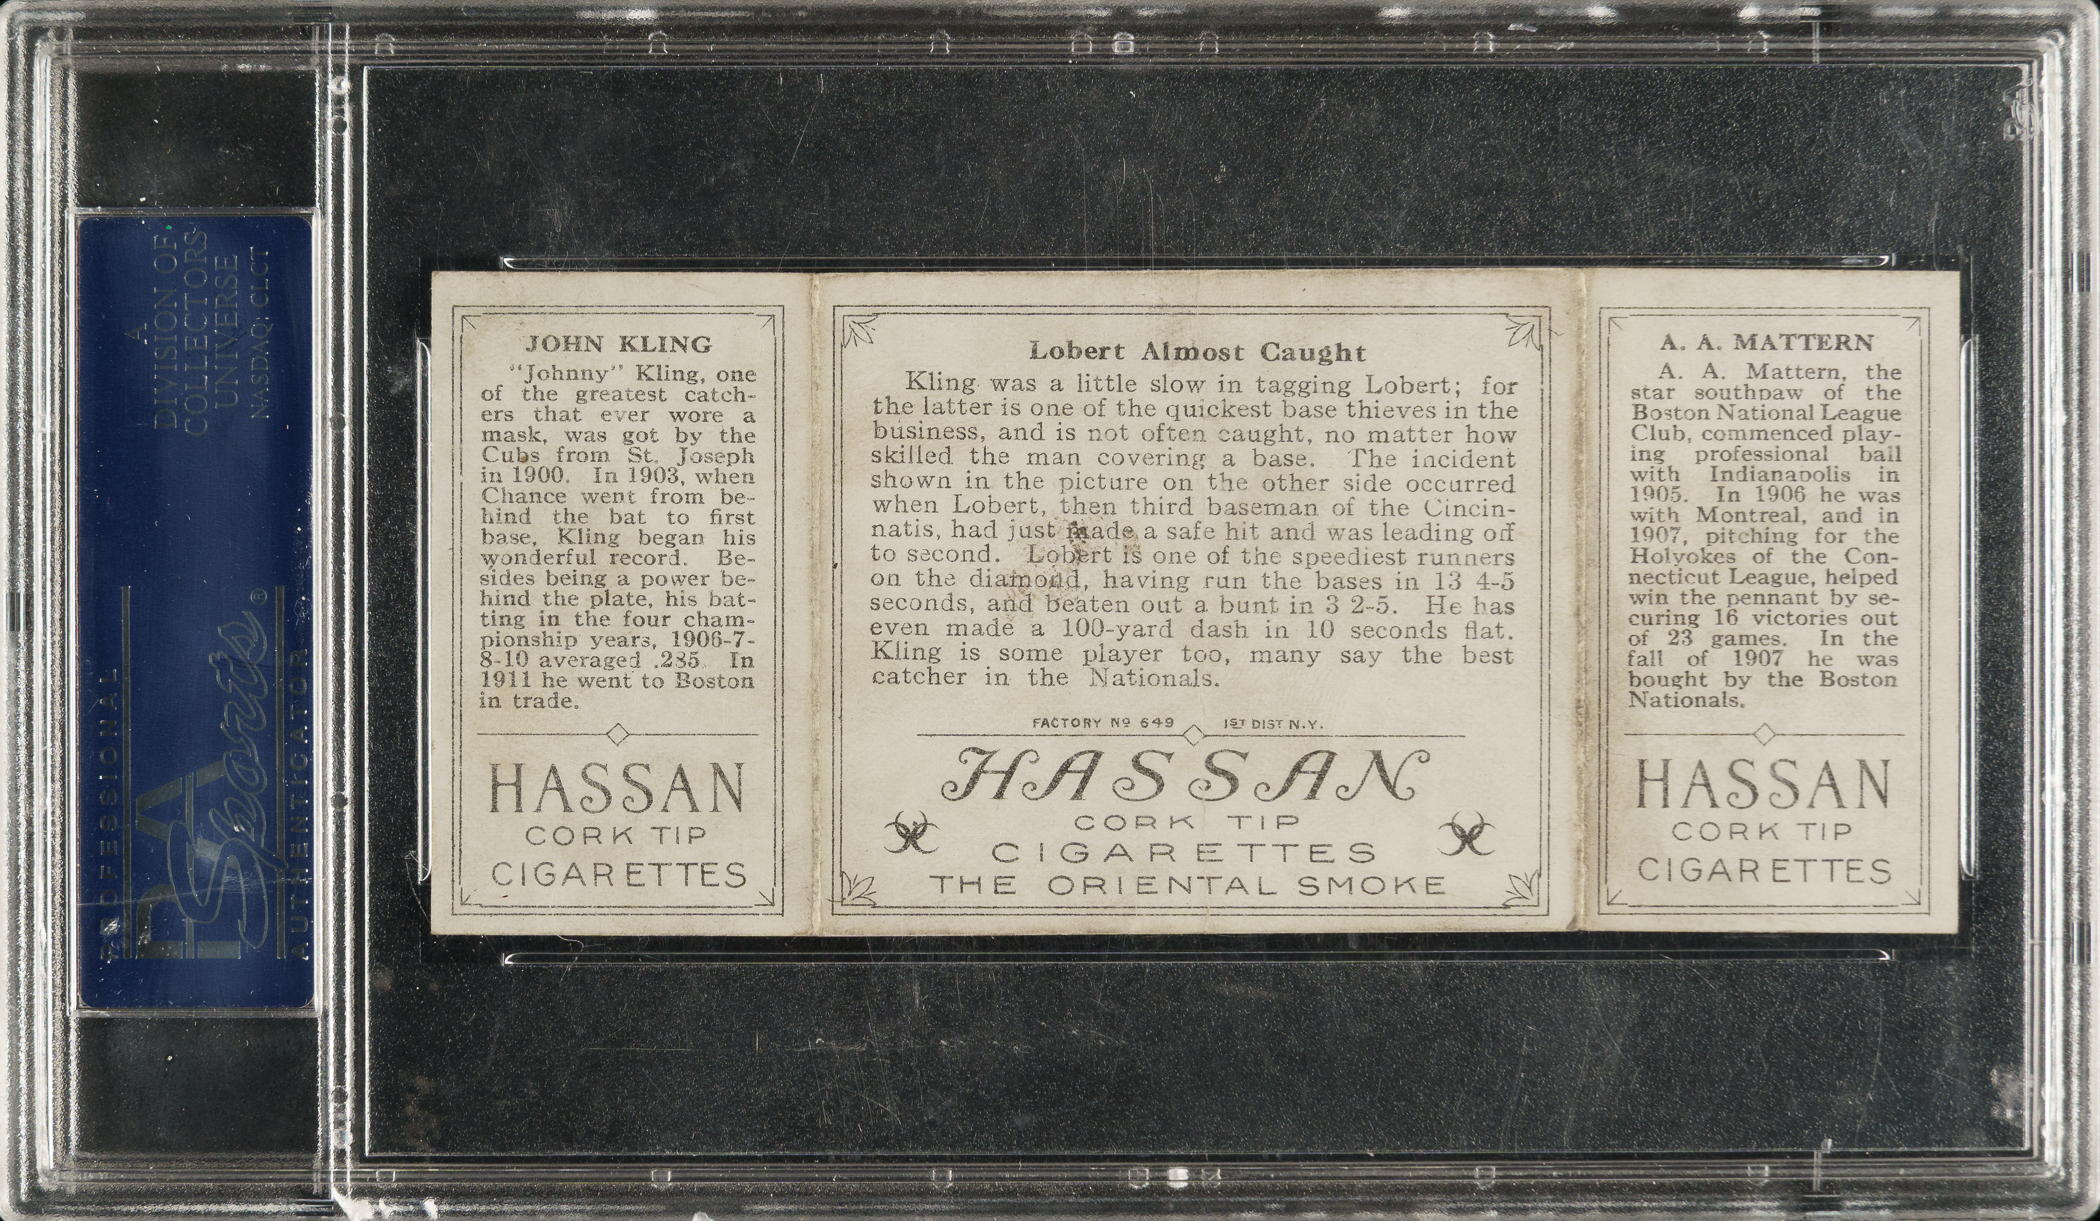 A
DIVISION OF
COLLECTORS
UNIVERSE
NASDAQ: CLCT
PROFESSIONAL
PSA
Sports®
AUTHENTICATOR
JOHN KLING
"Johnny" Kling, one
of the greatest catch-
ers that ever wore a
mask, was got by the
Cubs from St. Joseph
in 1900. In 1903, when
Chance went from be-
hind the bat to first
base, Kling began his
wonderful record. Be-
sides being a power be-
hind the plate, his bat-
ting in the four cham-
pionship years, 1906-7-
8-10 averaged .285. In
1911 he went to Boston
in trade.
HASSAN
CORK TIP
CIGARETTES
Lobert Almost Caught
Kling was a little slow in tagging Lobert; for
the latter is one of the quickest base thieves in the
business, and is not often caught, no matter how
skilled the man covering a base. The incident
shown in the picture on the other side occurred
when Lobert, then third baseman of the Cincin-
natis, had just made a safe hit and was leading off
to second. Lobert is one of the speediest runners
on the diamond, having run the bases in 13 4-5
seconds, and beaten out a bunt in 3 2-5. He has
even made a 100-yard dash in 10 seconds flat.
Kling is some player too, many say the best
catcher in the Nationals.
FACTORY Nº 649 1ST DIST N.Y.
HASSAN
CORK TIP
CIGARETTES
THE ORIENTAL SMOKE
A. A. MATTERN
A. A. Mattern, the
star southpaw of the
Boston National League
Club, commenced play-
ing professional ball
with Indianapolis in
1905. In 1906 he was
with Montreal, and in
1907, pitching for the
Holyokes of the Con-
necticut League, helped
win the pennant by se-
curing 16 victories out
of 23 games. In the
fall of 1907 he was
bought by the Boston
Nationals.
HASSAN
CORK TIP
CIGARETTES